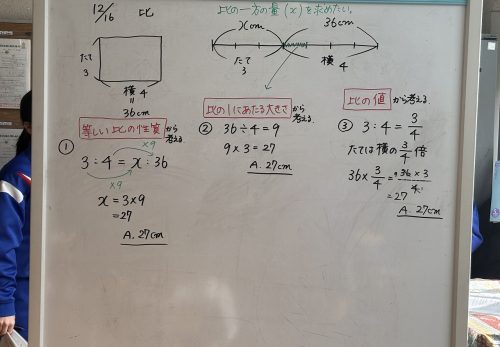 12/16 比
比の一方の量(x)を求めたい。
たて
3
横 4
=
36cm
xcm 36cm
たて
3
横
4
等しい比の性質から
考える
①
×9
3:4=x:36
×9
x=3×9
=27
A. 27cm
比の1にあたる大きさで
考える
② 36÷4=9
9×3=27
A. 27cm
比の値から考える
③ 3:4=3/4
たては横の3/4倍
36×3/4=36×3/4
=27
A. 27cm